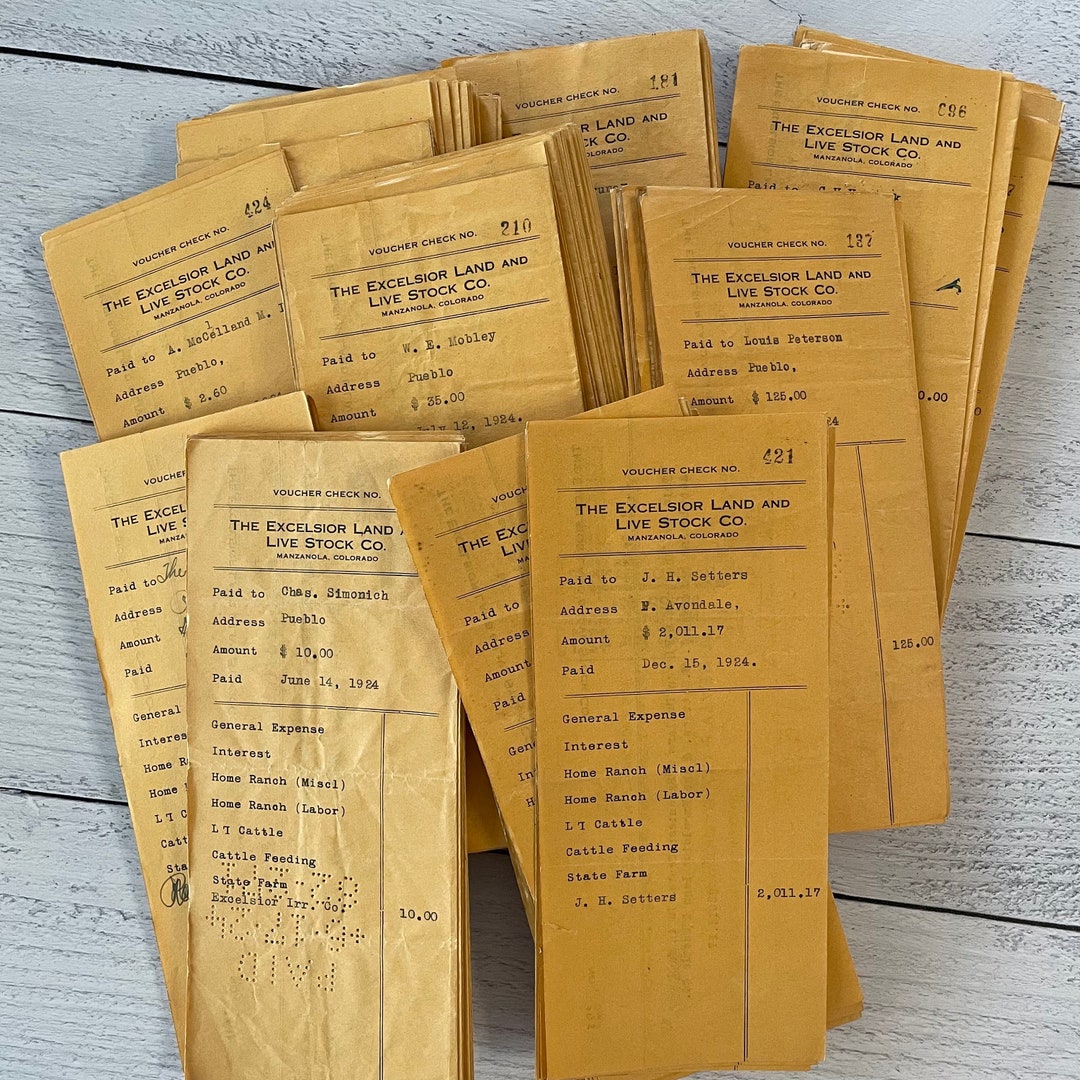 VOUCHER CHECK NO. 181
LAND AND
CK CO.
COLORADO
VOUCHER CHECK NO. 696
THE EXCELSIOR LAND AND
LIVE STOCK CO.
MANZANOLA, COLORADO
Paid to
0.00
VOUCHER CHECK NO. 424
THE EXCELSIOR LAND AND
LIVE STOCK CO.
MANZANOLA, COLORADO
Paid to A. McClelland M. I
Address Pueblo,
Amount $ 2.60
VOUCHER CHECK NO. 210
THE EXCELSIOR LAND AND
LIVE STOCK CO.
MANZANOLA, COLORADO
Paid to W. E. Mobley
Address Pueblo
Amount $ 35.00
July 12, 1924.
VOUCHER CHECK NO. 137
THE EXCELSIOR LAND AND
LIVE STOCK CO.
MANZANOLA, COLORADO
Paid to Louis Peterson
Address Pueblo,
Amount $ 125.00
24
125.00
VOUCHER
THE EXCEL
LIVE S
MANZ
Paid to The
Address
Amount
Paid
General
Interes
Home R
Home
L7 C
Catt
Sta
VOUCHER CHECK NO.
THE EXCELSIOR LAND
LIVE STOCK CO.
MANZANOLA, COLORADO
Paid to Chas. Simonich
Address Pueblo
Amount $ 10.00
Paid June 14, 1924
General Expense
Interest
Home Ranch (Miscl)
Home Ranch (Labor)
L7 Cattle
Cattle Feeding
State Farm
Excelsior Irr. Co. 10.00
PAID
VOUCH
THE EX
LIV
MA
Paid to
Address
Amount
Paid
Gen
In
H
VOUCHER CHECK NO. 421
THE EXCELSIOR LAND AND
LIVE STOCK CO.
MANZANOLA, COLORADO
Paid to J. H. Setters
Address E. Avondale,
Amount $ 2,011.17
Paid Dec. 15, 1924.
General Expense
Interest
Home Ranch (Miscl)
Home Ranch (Labor)
L7 Cattle
Cattle Feeding
State Farm
J. H. Setters 2,011.17